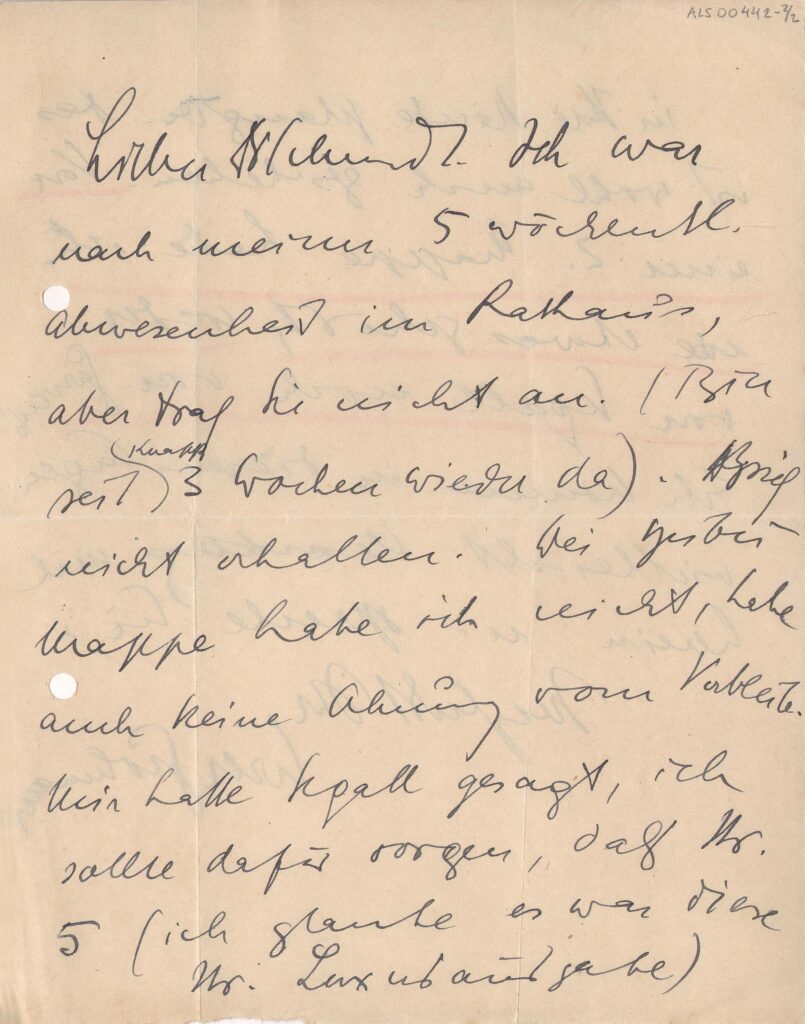 ALS 00442-2/2
Lieber Schmidt. Ich war
nach meiner 5 wöchentl.
Abwesenheit im Rathaus,
aber traf Sie nicht an. (Bin
seit (knapp) 3 Wochen wieder da). Brief
nicht erhalten. Die
Mappe habe ich nicht, habe
auch keine Ahnung vom Verbleib.
Mir hatte Segall gesagt, ich
sollte dafür sorgen, daß Nr.
5 (ich glaube es war diese
Nr. Luxusausgabe)